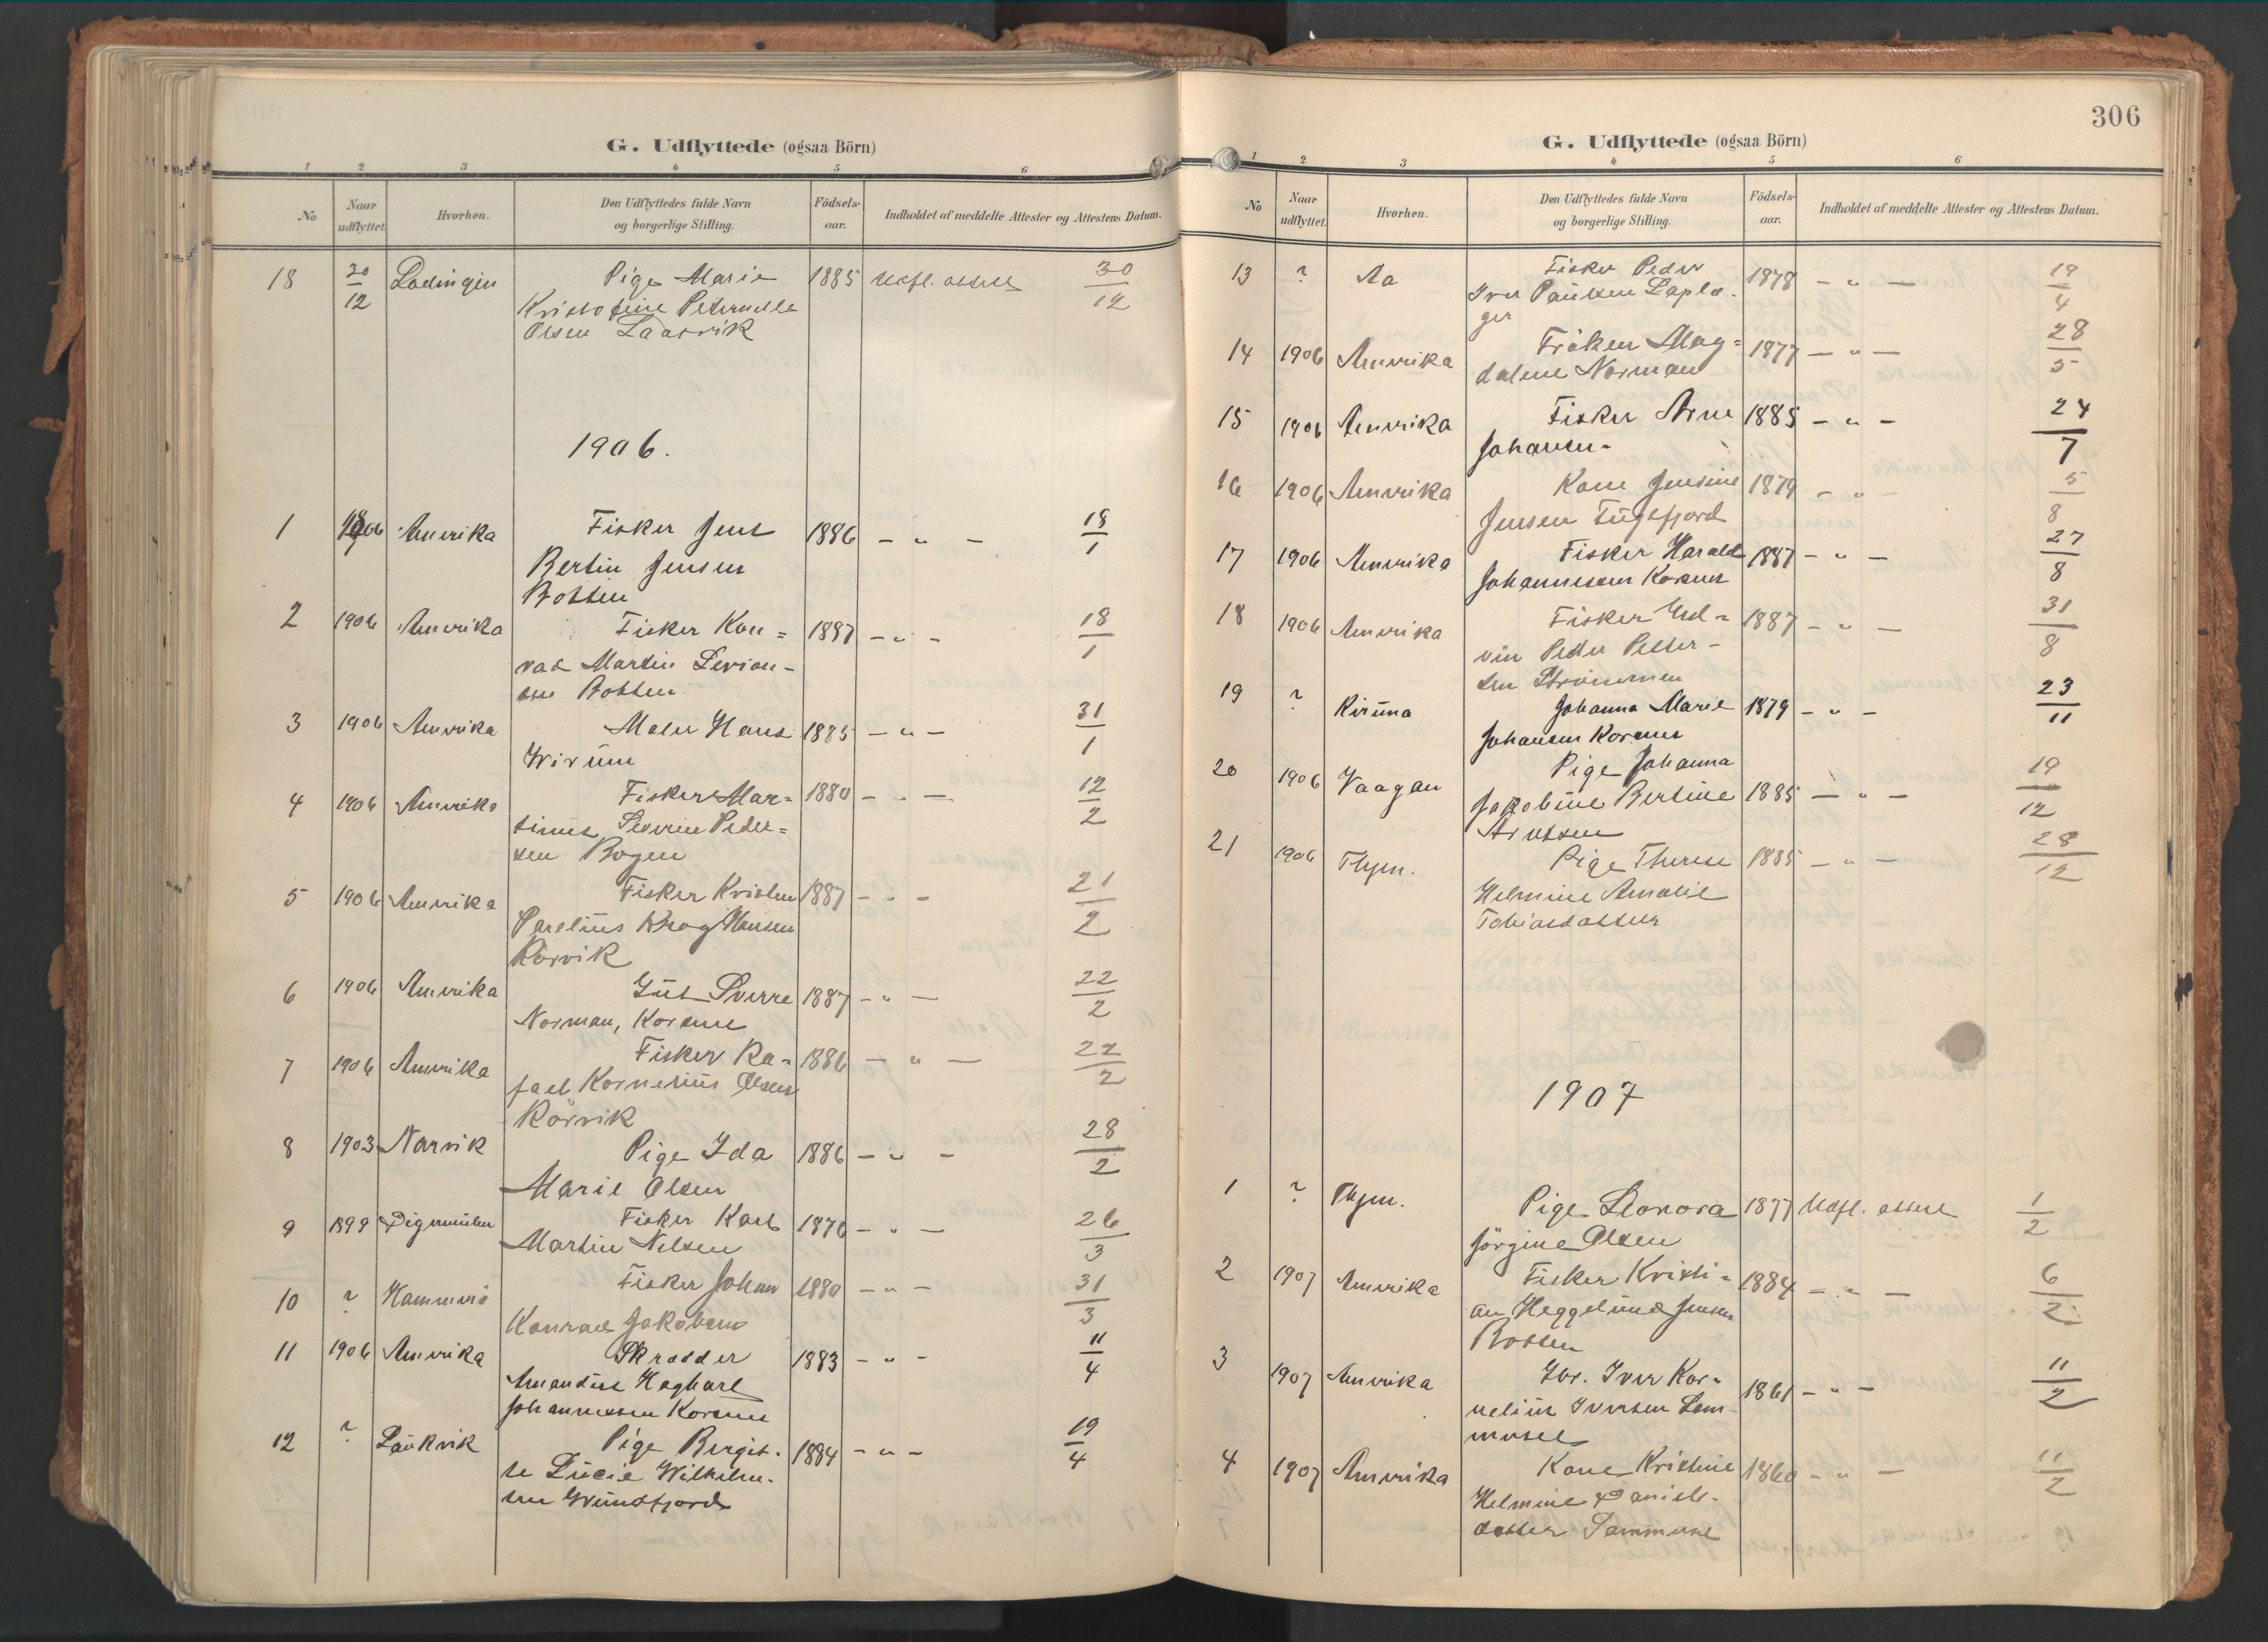 G. Udflyttede (ogsaa Börn)
1 2 3 4 5 6
No
Naar udflyttet.
Hvorhen.
Den Udflyttedes fulde Navn og borgerlige Stilling.
Födsels-aar.
Indholdet af meddelte Attester og Attestens Datum.
18 30/12 Lødingen Pige Marie 1885 Udfl. attest 30/12
Kristofine Peternelle
Olsen Laasvik
1906.
1 1906 Amerika Fisker Jens 1886 — " — 18/1
Bertin Jensen
Botten
2 1906 Amerika Fisker Kon= 1887 — " — 18/1
rad Martin
Botten
3 1906 Amerika Maler Hans 1885 — " — 31/1
4 1906 Amerika Fisker Mar= 1880 — " — 12/2
tinus Severin Peder=
sen Bogen
5 1906 Amerika Fisker Kristen 1887 — " — 21/2
Parelius Krog Hansen
Rörvik
6 1906 Amerika Gut Sverre 1887 — " — 22/2
Norman, Korsnes
7 1906 Amerika Fisker Ra= 1886 — " — 22/2
fael Kornelius Olsen
Rörvik
8 1903 Narvik Pige Ida 1886 — " — 28/2
Marie Olsen
9 1899 Digermulen Fisker Karl 1876 — " — 26/3
Martin Nilsen
10 ? Hammerö Fisker Johan 1880 — " — 31/3
Konrad Jakobsen
11 1906 Amerika Skrædder 1883 — " — 11/4
Amandus Hagbart
Johannessen Korsnes
12 ? Laukvik Pige Bergit- 1884 — " — 19/4
te Lucie Wilhelm-
sen Grundfjord
306
G. Udflyttede (ogsaa Börn)
1 2 3 4 5 6
No
Naar udflyttet.
Hvorhen.
Den Udflyttedes fulde Navn og borgerlige Stilling.
Födsels-aar.
Indholdet af meddelte Attester og Attestens Datum.
13 ? Aa Fisker Peder 1878 — " — 19/4
Iver Paulsen Laplæ-
ger
14 1906 Amerika Fröken Mag= 1877 — " — 28/5
dalene Norman
15 1906 Amerika Fisker Arne 1885 — " — 24/7
Johansen
16 1906 Amerika Kone Jensine 1879 — " — 5/8
Jensen
17 1906 Amerika Fisker Harald 1887 — " — 27/8
Johannessen Korsnes
18 1906 Amerika Fisker 1887 — " — 31/8
vin Peder Peder-
sen Strömmen
19 ? Kiruna Johanna Marie 1879 — " — 23/11
Johansen Korsnes
20 1906 Vaagan Pige Johanna
Jakobine Bertine 1885 — " — 19/12
Arntsen
21 1906 Thjem. Pige Therese 1885 — " — 28/12
Helmine Amalie
Tobiasdatter
1907
1 ? Thjem. Pige Leonora 1877 Udfl. attest 1/2
Jörgine Olsen
2 1907 Amerika Fisker Kristi= 1884 — " — 6/2
an Heggelund Jensen
Botten
3 1907 Amerika Gbr. Iver Kor= 1861 — " — 11/2
nelius Iversen Lom-
4 1907 Amerika Kone Kristine 1860 — " — 11/2
Helmine Daniels-
datter